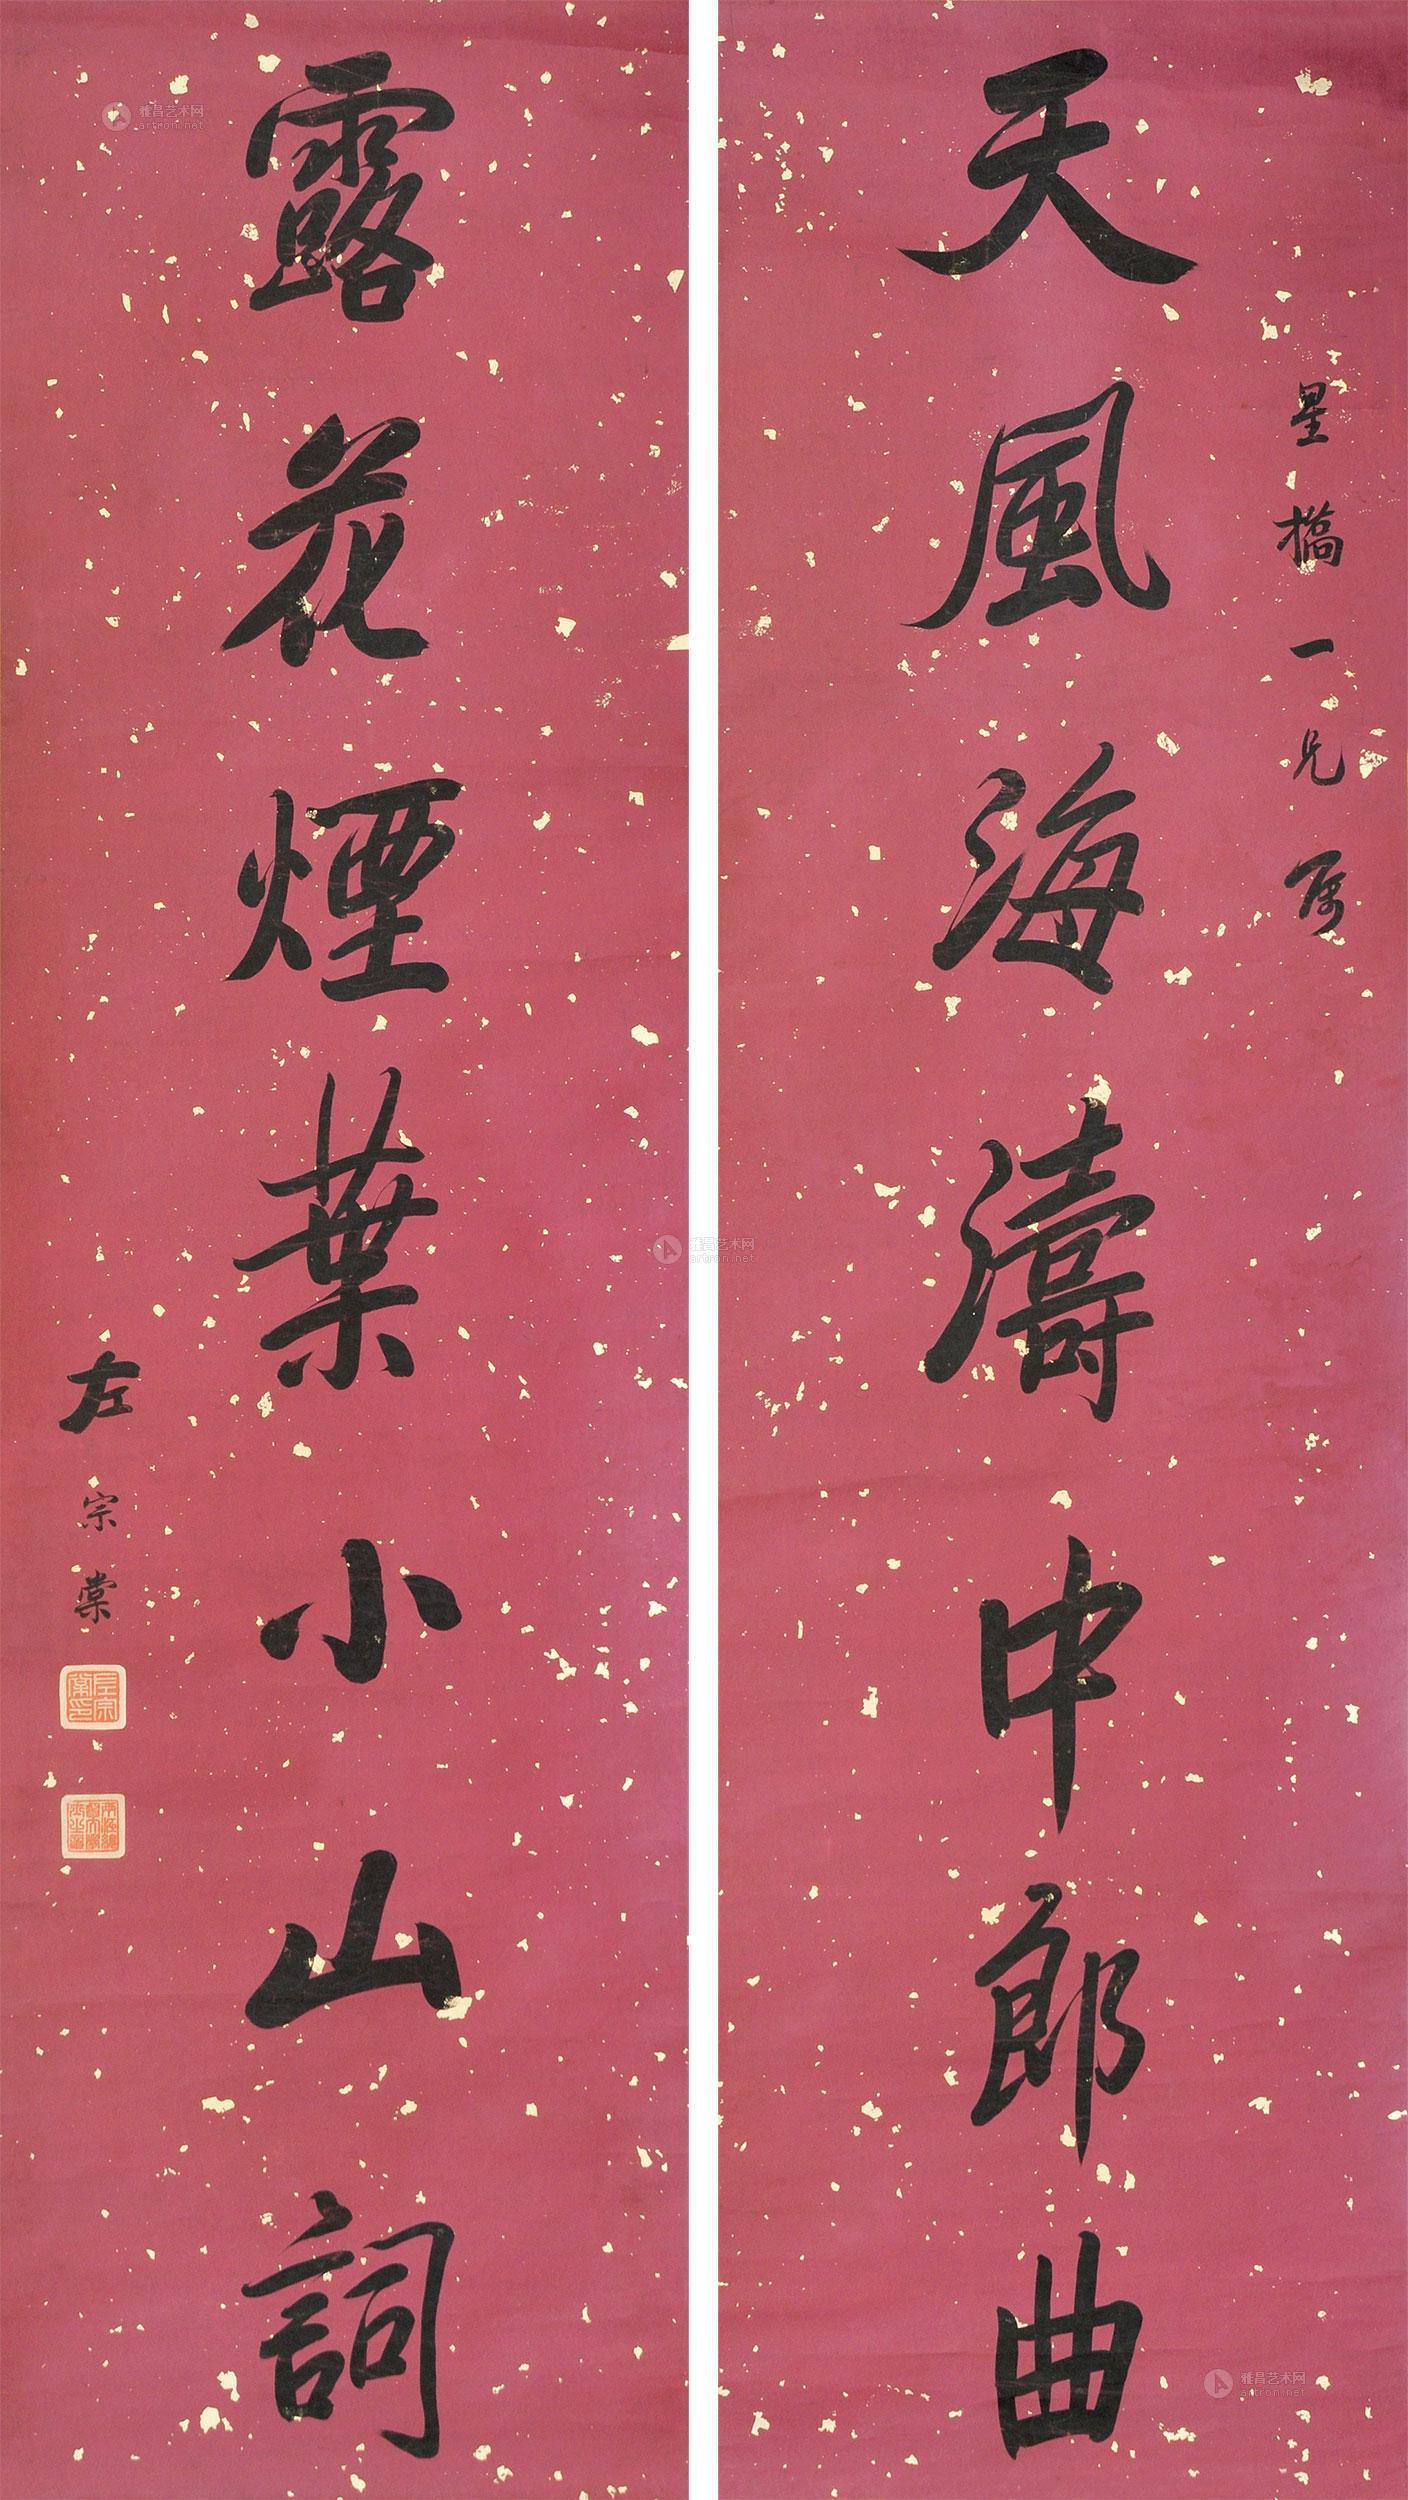 星橋一兄属
天風海濤中郎曲
露花煙葉小山詞
左宗棠
左宗棠印
雅昌艺术网
artron.net
雅昌艺术网
artron.net
雅昌艺术网
artron.net